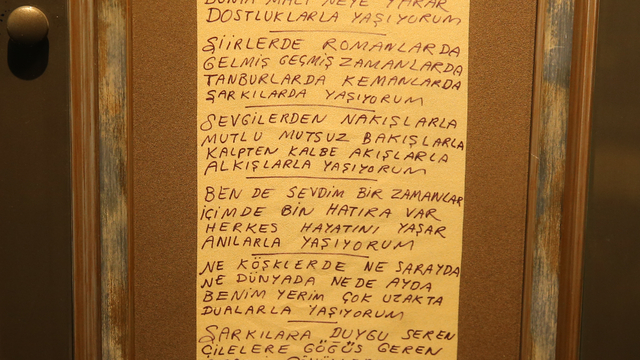 DÜNYA MALI NEYE YARAR
DOSTLUKLARLA YAŞIYORUM
ŞİİRLERDE ROMANLARDA
GELMİŞ GEÇMİŞ ZAMANLARDA
TANBURLARDA KEMANLARDA
ŞARKILARDA YAŞIYORUM
SEVGİLERDEN NAKIŞLARLA
MUTLU MUTSUZ BAKIŞLARLA
KALPTEN KALBE AKIŞLARLA
ALKIŞLARLA YAŞIYORUM
BEN DE SEVDİM BİR ZAMANLAR
İÇİMDE BİN HATIRA VAR
HERKES HAYATINI YAŞAR
ANILARLA YAŞIYORUM
NE KÖŞKLERDE NE SARAYDA
NE DÜNYADA NEDE AYDA
BENİM YERİM ÇOK UZAKTA
DUALARLA YAŞIYORUM
ŞARKILARA DUYGU SEREN
ÇİLELERE GÖĞÜS GEREN